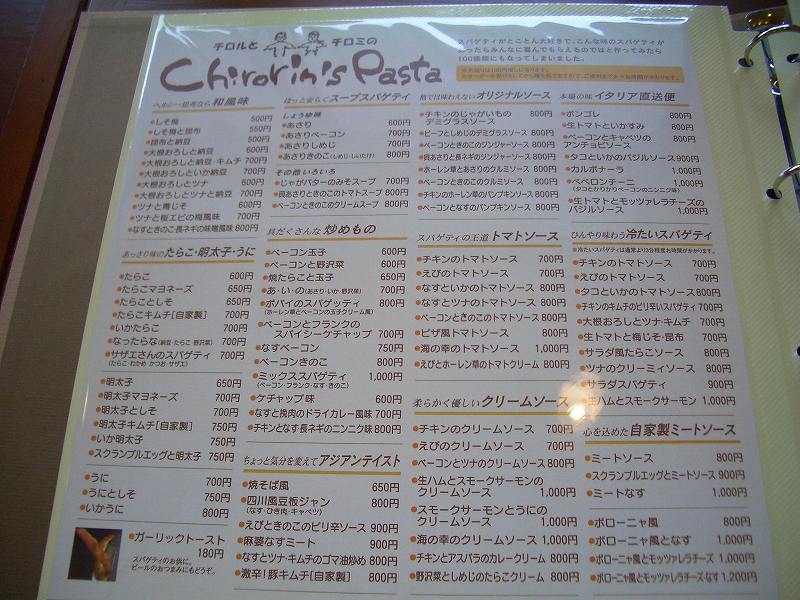 チロルと チロミの
Chirorin's Pasta
スパゲティがとことん大好きで、こんな味のスパゲティが
あったらみんなに喜んでもらえるのではと作ってみたら
100種類にもなってしまいました。
ヘルシー思考なら 和風味
しそ梅 500円
しそ梅と昆布 550円
昆布と納豆 500円
大根おろしと納豆 600円
大根おろしと納豆・キムチ 700円
大根おろしといか納豆 700円
大根おろしとツナ 600円
大根おろしとツナと納豆 700円
ツナと青じそ 600円
ツナと桜エビの梅風味 700円
なすときのこ長ネギの味噌風味 800円
あっさり味の たらこ・明太子・うに
たらこ 600円
たらこマヨネーズ 650円
たらことしそ 650円
たらこキムチ[自家製] 700円
いかたらこ 700円
なったらな(納豆・たらこ・野沢菜) 700円
サザエさんのスパゲティ 700円
(たらこ・わかめ・かつお・サザエ)
明太子 650円
明太子マヨネーズ 700円
明太子としそ 700円
明太子キムチ[自家製] 750円
いか明太子 750円
スクランブルエッグと明太子 750円
うに 700円
うにとしそ 750円
いかうに 800円
ガーリックトースト
180円
スパゲティのお供に。
ビールのおつまみにもどうぞ。
ほっと安らぐ スープスパゲティ
しょうゆ味
あさり 600円
あさりベーコン 700円
あさりしめじ 700円
あさりきのこ(しめじ・しいたけ) 800円
その他いろいろ
じゃがバターのみそスープ 700円
貝あさりときのこのトマトスープ 800円
ベーコンときのこのクリームスープ 800円
具だくさんな 炒めもの
ベーコン玉子 600円
ベーコンと野沢菜 600円
焼たらこと玉子 650円
あ・い・の(あさり・いか・野沢菜) 700円
ポパイのスパゲッティ 800円
(ホーレン草とベーコンの玉子クリーム風)
ベーコンとフランクの
スパイシーケチャップ 700円
なすベーコン 750円
ベーコンきのこ 800円
ミックススパゲティ 1,000円
(ベーコン・フランク・なす・きのこ)
ケチャップ味 600円
なすと挽肉のドライカレー風味 700円
チキンとなす長ネギのニンニク味 800円
ちょっと気分を変えて アジアンテイスト
焼そば風 650円
四川風豆板ジャン 800円
(なす・ひき肉・キャベツ)
えびときのこのピリ辛ソース 900円
麻婆なすミート 900円
なすとツナ・キムチのゴマ油炒め 800円
激辛!豚キムチ[自家製] 800円
他では味わえない オリジナルソース
チキンのじゃがいもの
デミグラスソース 800円
ビーフとしめじのデミグラスソース 800円
ベーコンときのこのジンジャーソース 800円
貝あさりと長ネギのジンジャーソース 800円
ホーレン草とあさりのクルミソース 800円
ベーコンときのこのクルミソース 800円
チキンのホーレン草のパンプキンソース 800円
ベーコンとなすのパンプキンソース 800円
スパゲティの王道 トマトソース
チキンのトマトソース 700円
えびのトマトソース 700円
なすといかのトマトソース 800円
なすとツナのトマトソース 800円
ベーコンときのこのトマトソース 800円
ピザ風トマトソース 800円
海の幸のトマトソース 1,000円
えびとホーレン草のトマトクリーム 800円
柔らかく優しい クリームソース
チキンのクリームソース 700円
えびのクリームソース 700円
ベーコンとツナのクリームソース 800円
生ハムとスモークサーモンの
クリームソース 1,000円
スモークサーモンとうにの
クリームソース 1,000円
海の幸のクリームソース 1,000円
チキンとアスパラのカレークリーム 800円
野沢菜としめじのたらこクリーム 800円
本場の味 イタリア直送便
ボンゴレ 800円
生トマトといかすみ 800円
ベーコンとキャベツの
アンチョビソース 800円
タコといかのバジルソース 900円
カルボナーラ 1,000円
ペペロンチーニ 1,000円
生トマトとモッツァレラチーズの
バジルソース 1,000円
ひんやり味わう 冷たいスパゲティ
※冷たいスパゲティは通常より3分程度お時間がかかります。
チキンのトマトソース 700円
えびのトマトソース 700円
タコといかのトマトソース 800円
チキンのキムチのピリ辛いスパゲティ 700円
大根おろしとツナ・キムチ 700円
生トマトと梅じそ・昆布 700円
サラダ風たらこソース 800円
ツナのクリーミィソース 800円
サラダスパゲティ 900円
生ハムとスモークサーモン 1,000円
心を込めた 自家製ミートソース
ミートソース 800円
スクランブルエッグとミートソース 900円
ミートなす 1,000円
ボローニャ風 800円
ボローニャ風となす 1,000円
ボローニャ風とモッツァレラチーズ 1,000円
ボローニャ風とモッツァレラチーズ・なす 1,200円